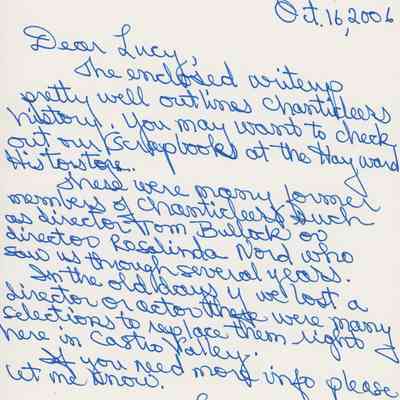 Oct. 16, 2006
Dear Lucy,
The enclosed writeup
pretty well outlines Chanticleers
history. You may want to check
out our scrapbooks at the Hayward
Historstore..
These were many former
members of Chanticleers such
as director Tom Bullock or
director Rosalinda Nord who
saw us through several years.
In the old days if we lost a
director or actor there were many
selections to replace them right
here in Castro Valley.
If you need more info please
let me know.